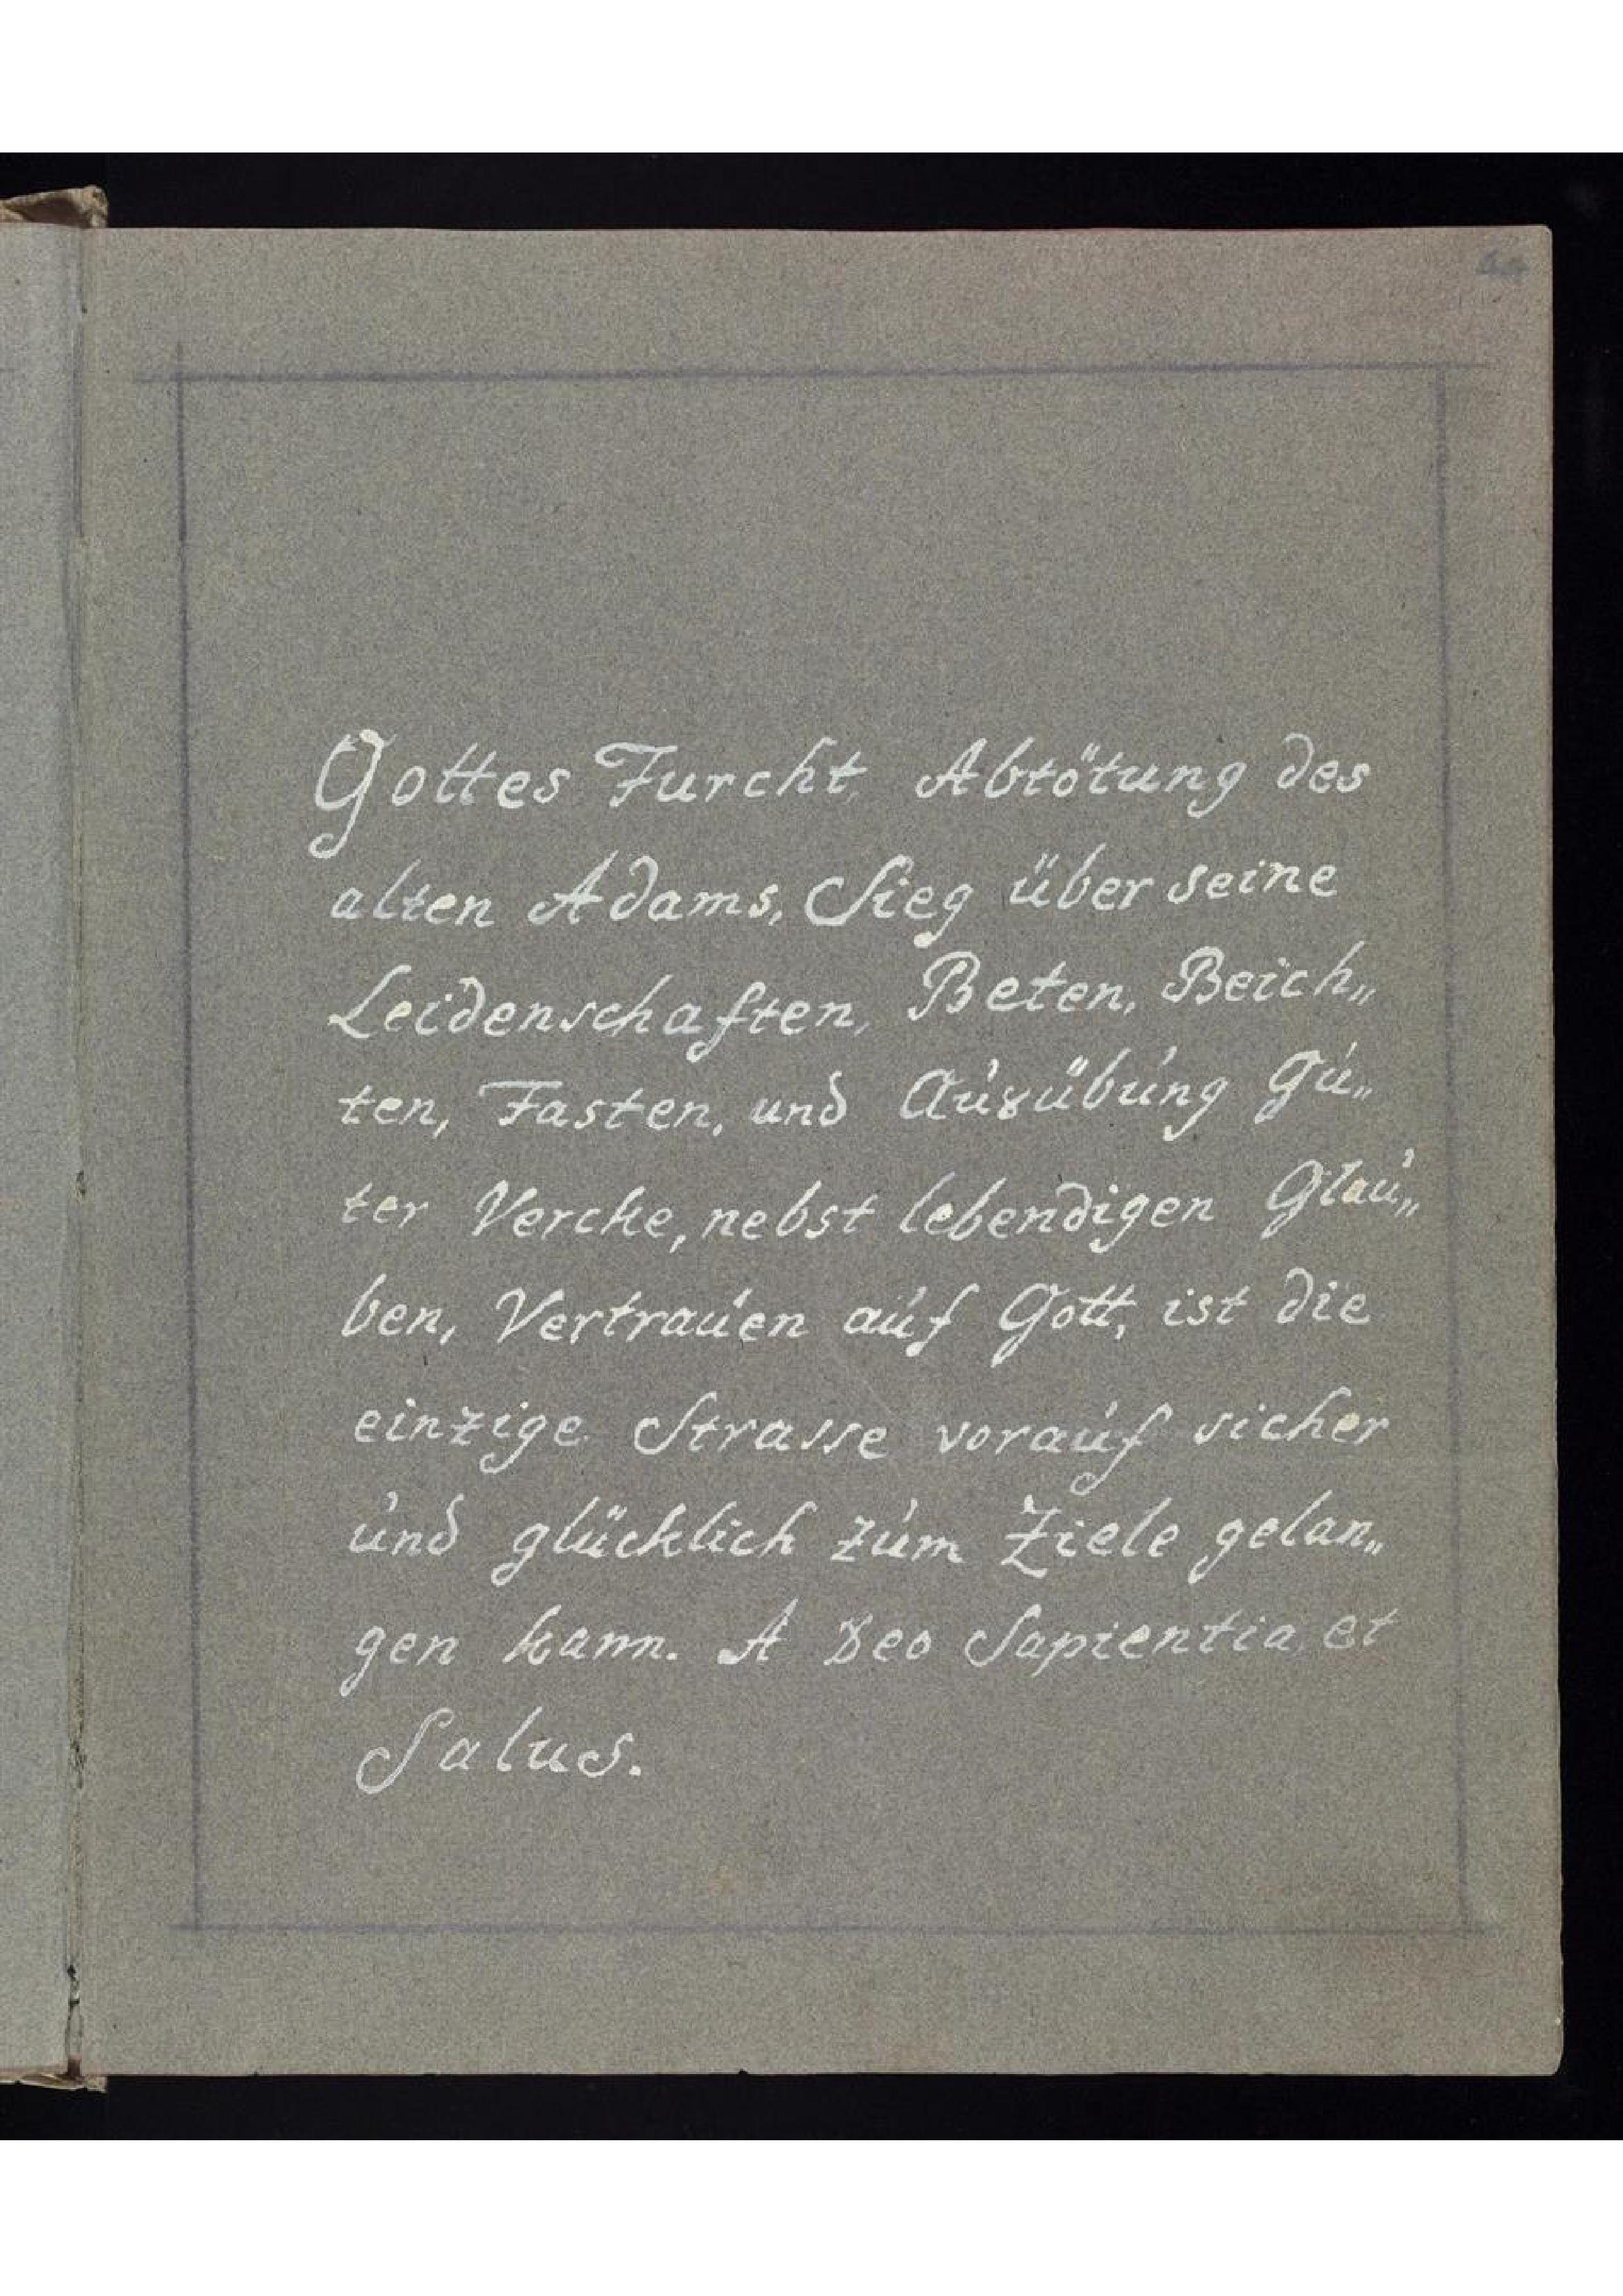 Gottes Furcht, Abtötung des
alten Adams, Sieg über seine
Leidenschaften, Beten, Beich„
ten, Fasten, und Ausübung Gu„
ter Vercke, nebst lebendigen Glau„
ben, Vertrauen auf Gott, ist die
einzige Strasse vorauf sicher
und glücklich zum Ziele gelan„
gen kann. A Deo Sapientia et
Salus.